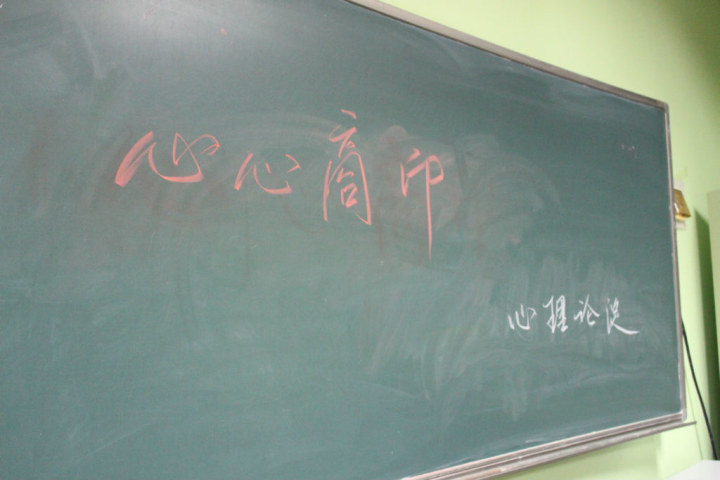 心心商印
心理论